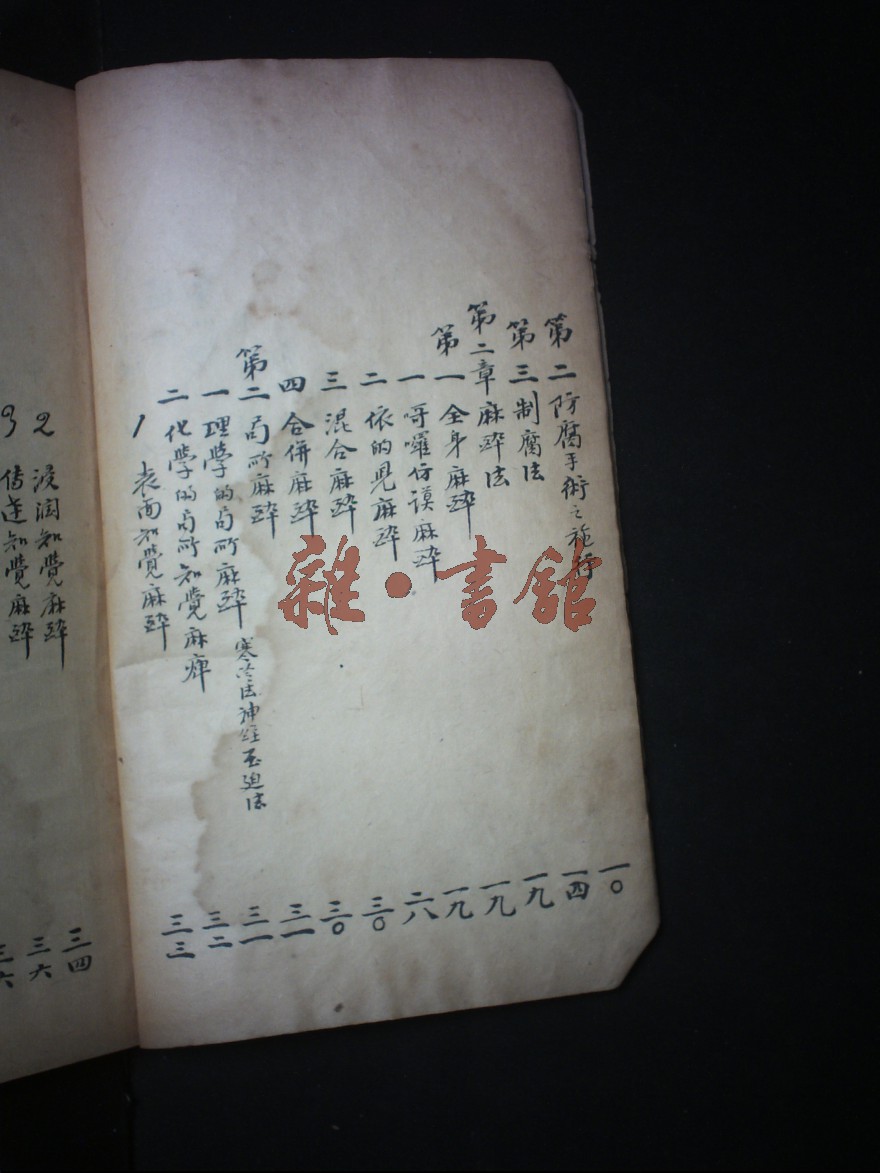 第二 防腐手術之施行 一〇
第三 制腐法 一四
第二章 麻醉法 一九
第一 全身麻醉 一九
一 哥囉仿謨麻醉 一九
二 依的兒麻醉 二八
三 混合麻醉 三〇
四 合併麻醉 三〇
第二 局所麻醉 三一
一 理學的局所麻醉 寒冷法神經壓迫法 三一
二 化學的局所知覺麻痺 三二
1 表面知覺麻醉 三三
2 浸潤知覺麻醉 三四
3 傳達知覺麻醉 三六
三六
雜·書館